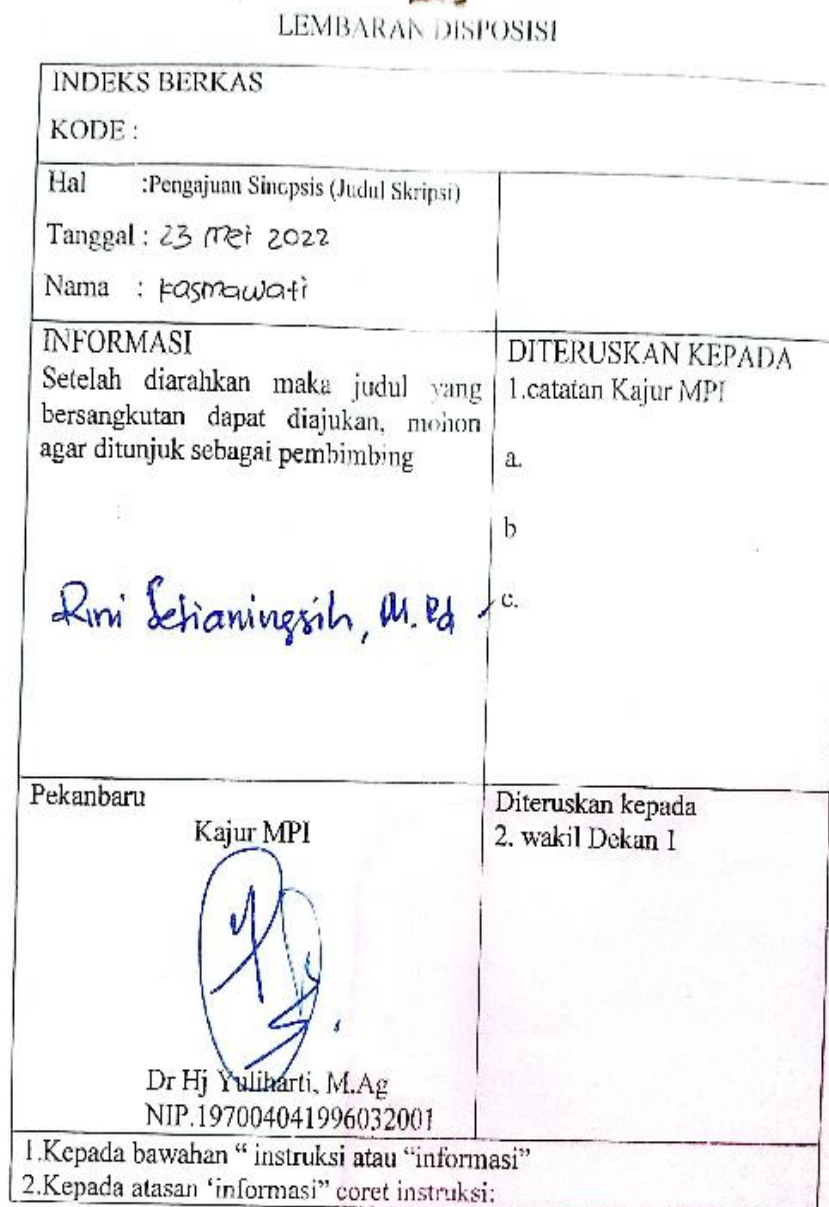 LEMBARAN DISPOSISI
INDEKS BERKAS
KODE :
Hal :Pengajuan Sinopsis (Judul Skripsi)
Tanggal : 23 Mei 2022
Nama : Kasmawati
INFORMASI
Setelah diarahkan maka judul yang
bersangkutan dapat diajukan, mohon
agar ditunjuk sebagai pembimbing
Rini Setianingsih, M.Pd
DITERUSKAN KEPADA
1.catatan Kajur MPI
a.
b
c.
Pekanbaru
Kajur MPI
Dr Hj Yuliharti, M.Ag
NIP.197004041996032001
Diteruskan kepada
2. wakil Dekan 1
1.Kepada bawahan “ instruksi atau “informasi”
2.Kepada atasan ‘informasi” coret instruksi: